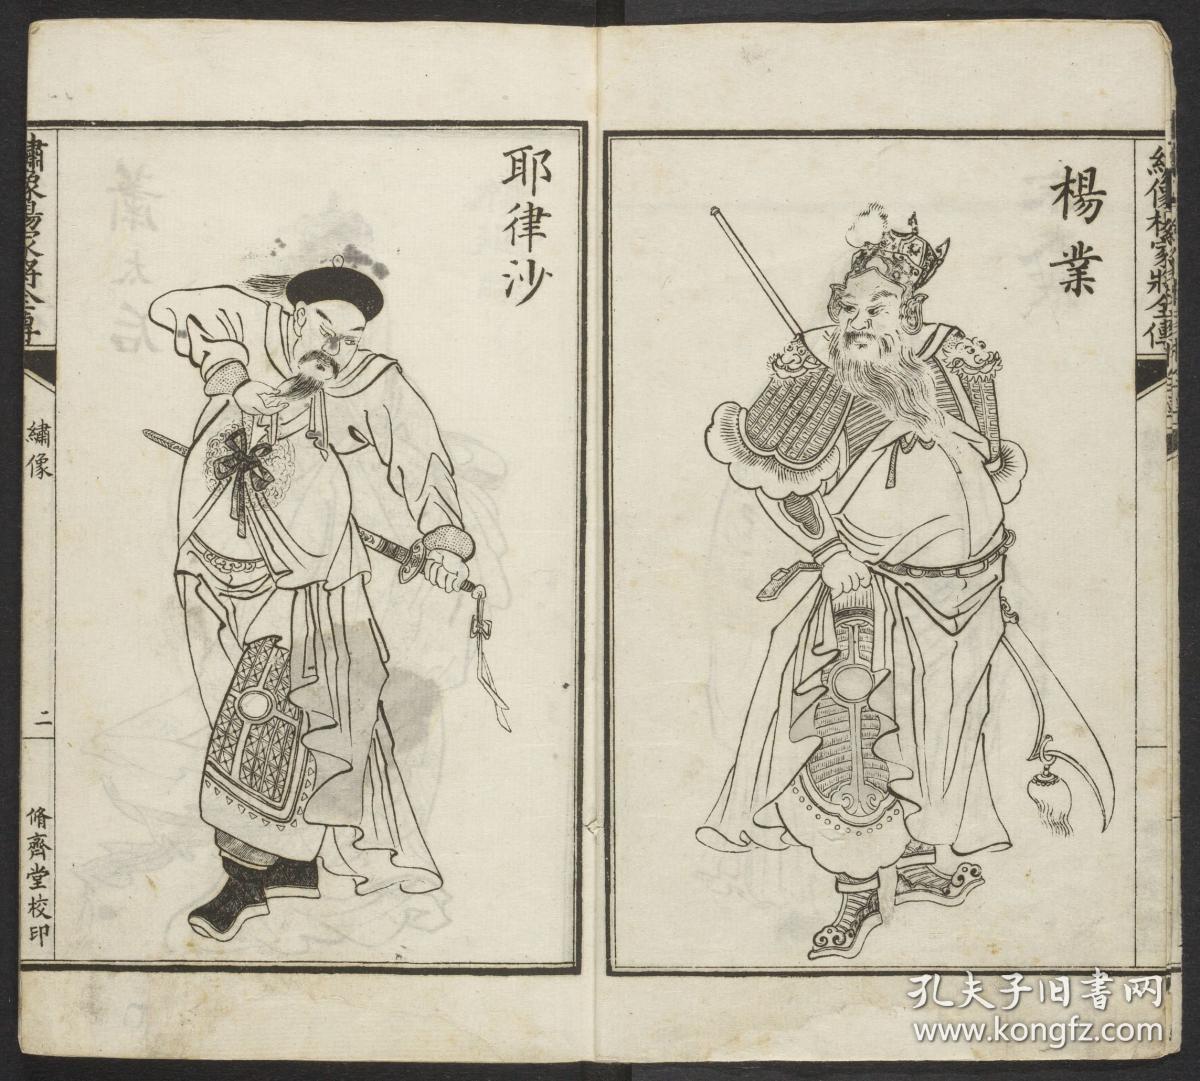 楊業
繡像楊家將全傳
耶律沙
繡像楊家將全傳
繡像
二
脩齊堂校印
蕭太后
孔夫子旧书网
www.kongfz.com